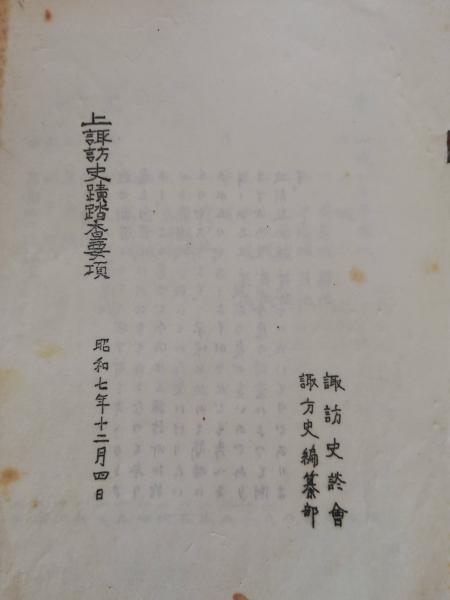 諏訪史談會
諏方史編纂部
昭和七年十二月四日
上諏訪史蹟踏査要項